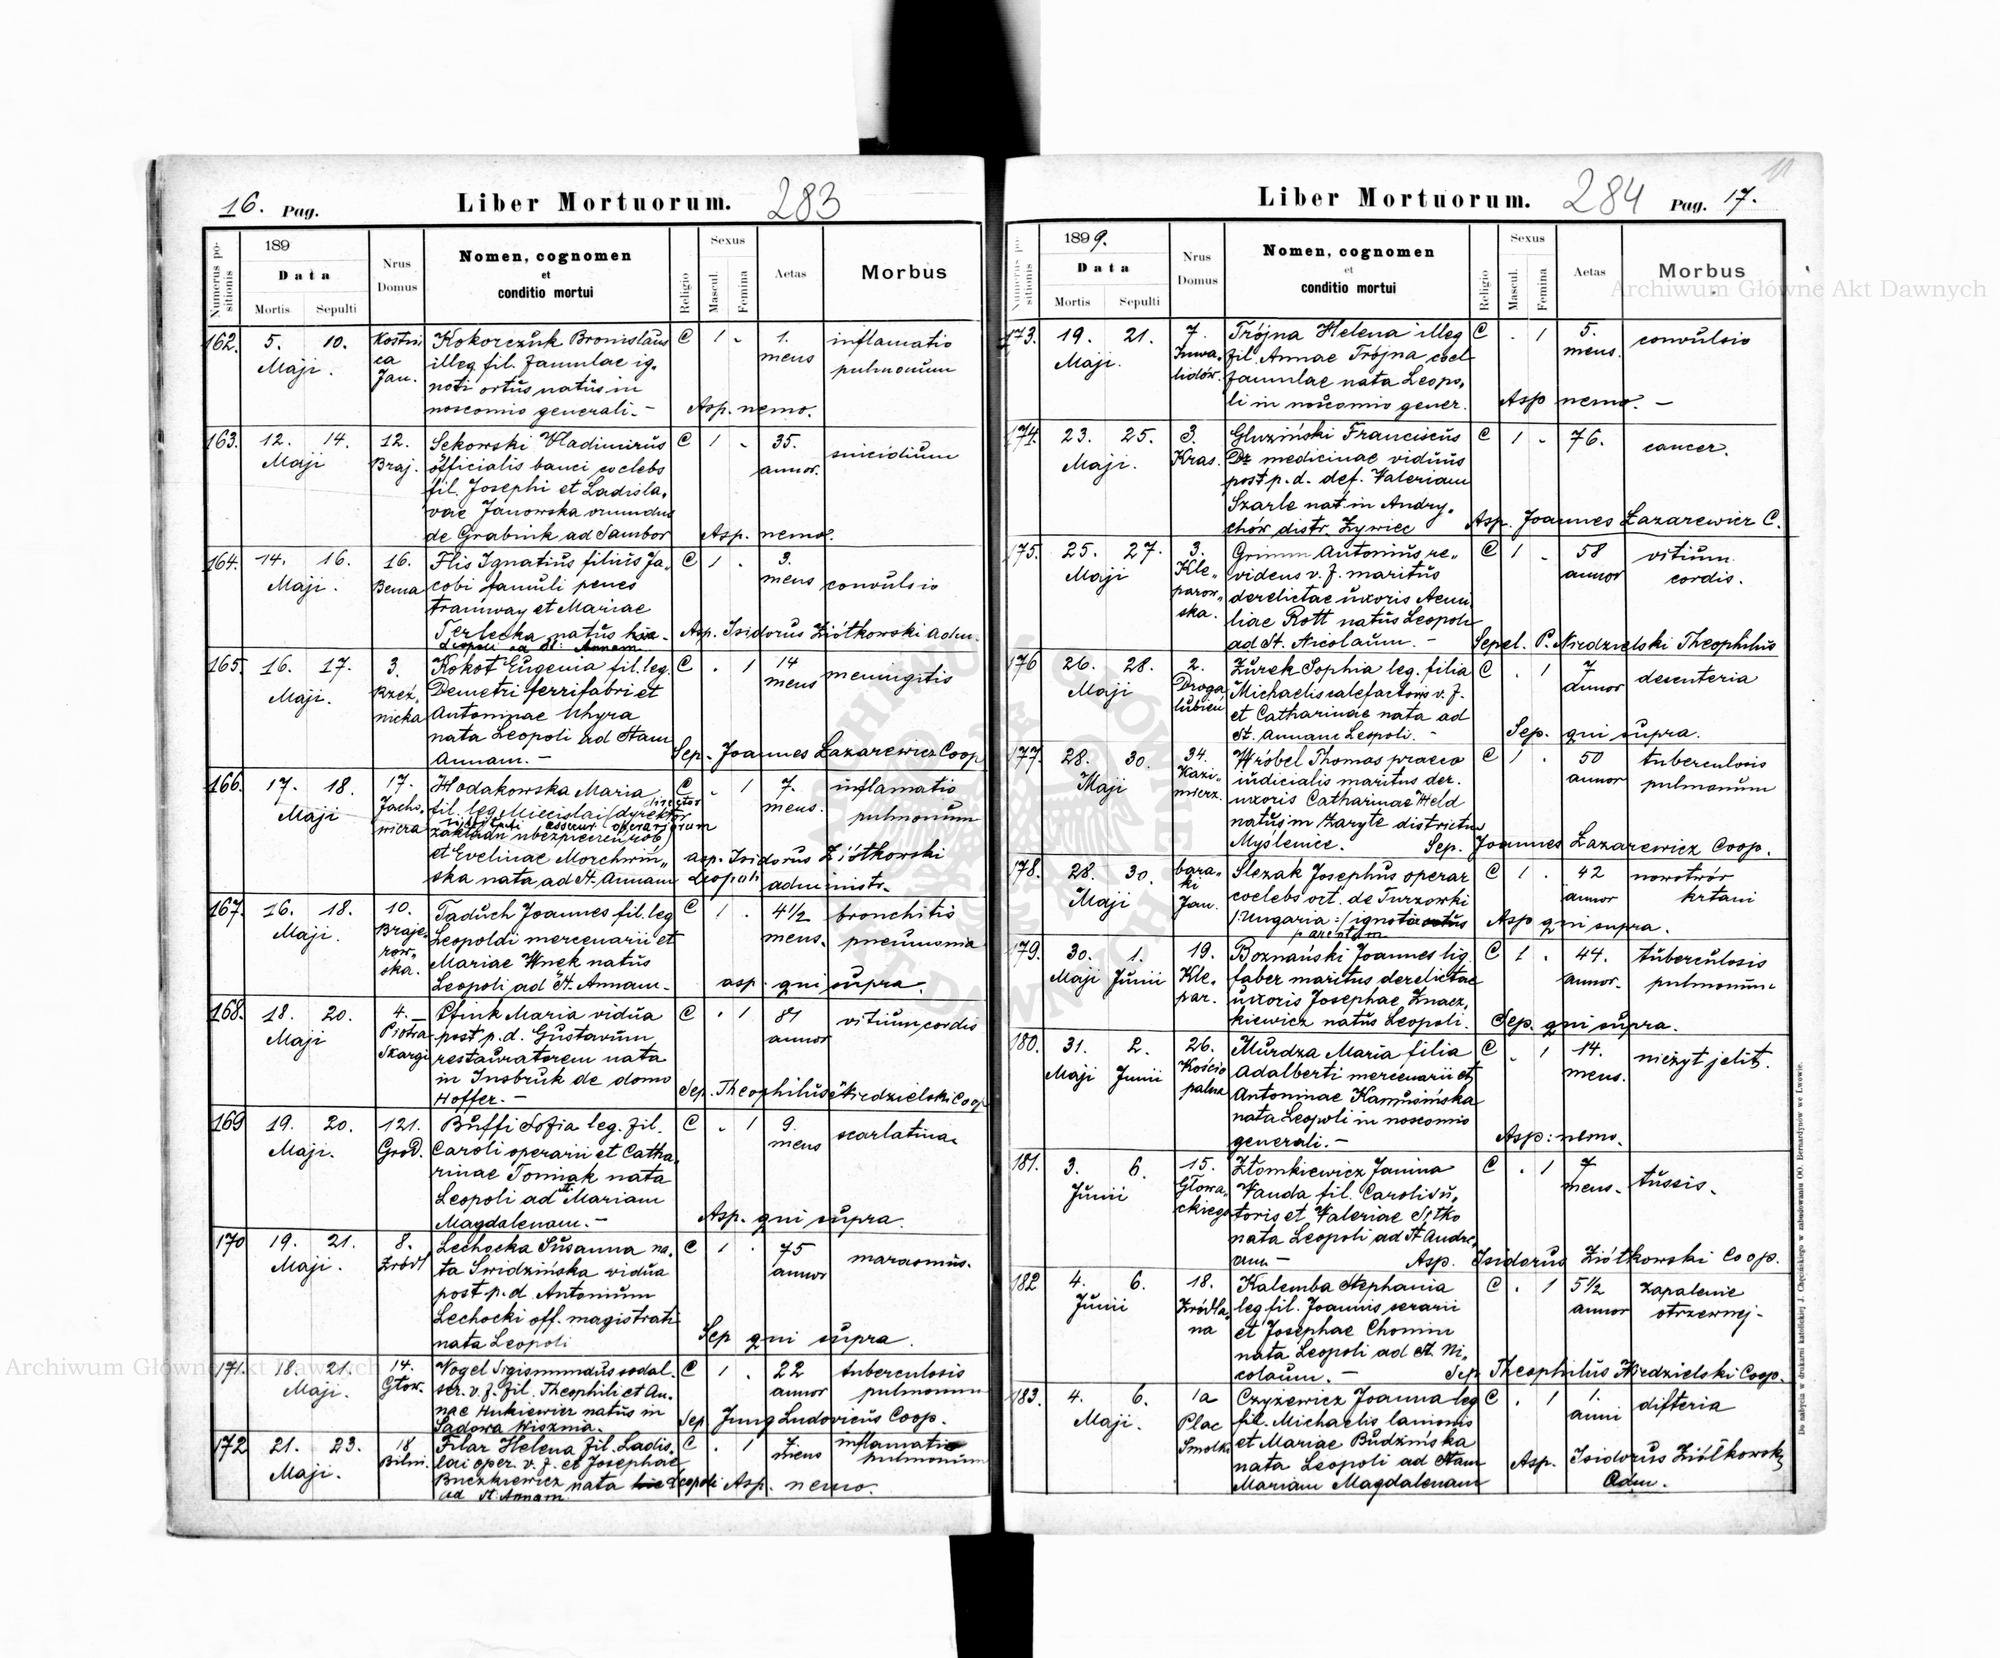 16. Pag.
Liber Mortuorum.
283
Numerus positionis
189
Data
Mortis Sepulti
Nrus Domus
Nomen, cognomen
et
conditio mortui
Religio
Sexus
Mascul. Femina
Aetas
Morbus
162. 5. 10. Kokorczuk Bronislaus C 1 - 1. inflamatio
Maji. illeg. fil. famulae ig- mens pulmonum
Jan. noti ortus natus in
noscomio generali.- Asp. nemo.
163. 12. 14. 12. Sekowski Vladimirus C 1 - 35. suicidium
Maji Braj. officialis banci coelebs annor.
fil. Josephi et Ladisla-
vae Janowska
de Grabink ad Sambor Asp. nemo.
164. 14. 16. 16. Flis Ignatius filius Ja- C 1 . 3.
Maji. Bema cobi famuli penes mens convulsio
tramway et Mariae
Terlecka natus Asp. Isidorus Ziółkowski adm.
Leopoli ad St. Annam
165. 16. 17. 3. Kokot Eugenia fil. leg. C . 1 14 meningitis
Maji. Rzeź- Demetri ferrifabri et mens
nicka Antoninae
nata Leopoli ad Stam
Annam. - Sep. Joannes Łazarewicz Coop
166. 17. 18. 17. Hodakowska Maria C - 1 7. inflamatio
Maji Jacho- fil. leg. Miecislai /dyrektor mens. pulmonum
wicza zakładu ubezpieczeń rob.
et Evelinae Morchwiń- asp. Isidorus Ziółkowski
ska nata ad St. Annam Leopoli administr.
167. 16. 18. 10. Taduch Joannes fil. leg C 1 . 4 1/2 bronchitis
Maji. Braje- Leopoldi mercenarii et mens. pneumonia
row- Mariae Wnek natus
ska. Leopoli ad St. Annam- asp. qui supra.
168. 18. 20. 4. Pfink Maria vidua C . 1 81 vitium cordis
Maji Piotra post p. d. Gustavum annor
Skargi restauratorem nata
in Insbruk de domo
Hoffer.- Sep. Theophilus Niedzielski Coop
169 19. 20. 121. Buffi Sofia leg. fil. C - 1 9. scarlatina
Maji. Grod. Caroli operarii et Catha- mens
rinae Tomiak nata
Leopoli ad St. Mariam
Magdalenam.- Asp. qui supra.
170 19. 21. 8. Lechocka Susanna na- C 1 . 75 marasmus.
Maji. Zródl ta Swidzińska vidua annor
post p. d. Antonium
Lechocki off. magistrati
nata Leopoli Sep qui supra.
171. 18. 21. 14. Vogel Sigismundus sodal. C 1 . 22 tuberculosis
Maji. Głow. scr. v. f. fil. Theophili et An- annor pulmonum
nae Hukiewicz natus in
Sadowa Wisznia. Sep Jung Ludovicus Coop.
172 21. 23. 18 Filar Helena fil. Ladis- C . 1 7 inflamatio
Maji. Bilin. lai oper. v. f. et Josephae mens pulmonum
Buczkiewicz nata Leopoli Asp. nemo.
ad St. Annam
Liber Mortuorum.
284
Pag. 17.
11
Numerus positionis
1899.
Data
Mortis Sepulti
Nrus Domus
Nomen, cognomen
et
conditio mortui
Religio
Sexus
Mascul. Femina
Aetas
Morbus
173. 19. 21. 7. Trójna Helena illeg C . 1 5. convulsio
Maji. Inwa- fil. Annae Trójna coel mens.
lidów. famulae nata Leopo-
li in noscomio gener. Asp nemo. -
174. 23. 25. 3. Gluziński Franciscus C 1 - 76. cancer.
Maji. Kras. Dr medicinae viduus
post p. d. def. Valeriam
Szarle nat. in Andry-
chów distr. Zywiec Asp. Joannes Łazarewicz C.
175. 25. 27. 3. Grimm Antonius re- C 1 - 58 vitium
Maji Kle- videns v. f. maritus annor cordis.
parow- derelictae uxoris Aemi
ska. liae Rott natus Leopoli
ad St. Nicolaum. - Sepel. P. Niedzielski Theophilus
176 26. 28. 2. Zurek Sophia leg. filia C . 1 7 desenteria
Maji Michaelis calefactoris v. f. annor
et Catharinae nata ad
St. Annam Leopoli. - Sep. qui supra.
177. 28. 30. 34. Wróbel Thomas praeco C 1 . 50 tuberculosis
Maji Kazi- iudicialis maritus der. annor pulmonum
mierz. uxoris Catharinae Held
natus in Zaryte districtus
Myślenice. Sep. Joannes Łazarewicz Coop.
178. 28. 30. bara- Slezak Josephus operar C 1 . 42 nowotwór
Maji ki coelebs ort. de Turzowki annor krtani
Jan. /:Ungaria:/ ignoti Asp qui supra.
parentum
179. 30. 1. 19. Boznański Joannes lig. C 1 . 44. tuberculosis
Maji Junii Kle- faber maritus derelictae annor. pulmonum
par. uxoris Josephae Znacz-
kiewicz natus Leopoli. Sep. qui supra.
180. 31. 2. 26. Murdza Maria filia C - 1 14. nieżyt jelit.
Maji Junii Kościo Adalberti mercenarii et mens.
palna Antoninae Kamusińska
nata Leopoli in noscomio
generali. - Asp: nemo.
181. 3. 6. 15. Złomkiewicz Janina C . 1 7 tussis.
Junii Głowa- Vanda fil. Caroli su- mens.
ckiego toris et Valeriae Sytko
nata Leopoli ad St Andre-
am - Asp. Isidorus Ziółkowski Coop.
182 4. 6. 18. Kalemba Stephania C . 1 5 1/2 Zapalenie
Junii Zródla- leg fil. Joannis serarii annor otrzewnej-
na et Josephae Chomin
nata Leopoli ad St. Ni-
colaum. - Sep Theophilus Niedzielski Coop.
183. 4. 6. 1a Czyżewicz Joanna leg C . 1 1. difteria
Maji. Plac fil. Michaelis lanionis anni
Smolki et Mariae Budzińska
nata Leopoli ad Stam Asp. Isidorus Ziółkowski
Mariam Magdalenam Adm.
Do nabycia w drukarni katolickiej J. Chęcińskiego w zabudowaniu OO. Bernardynów we Lwowie.
Archiwum Główne Akt Dawnych
Archiwum Główne Akt Dawnych